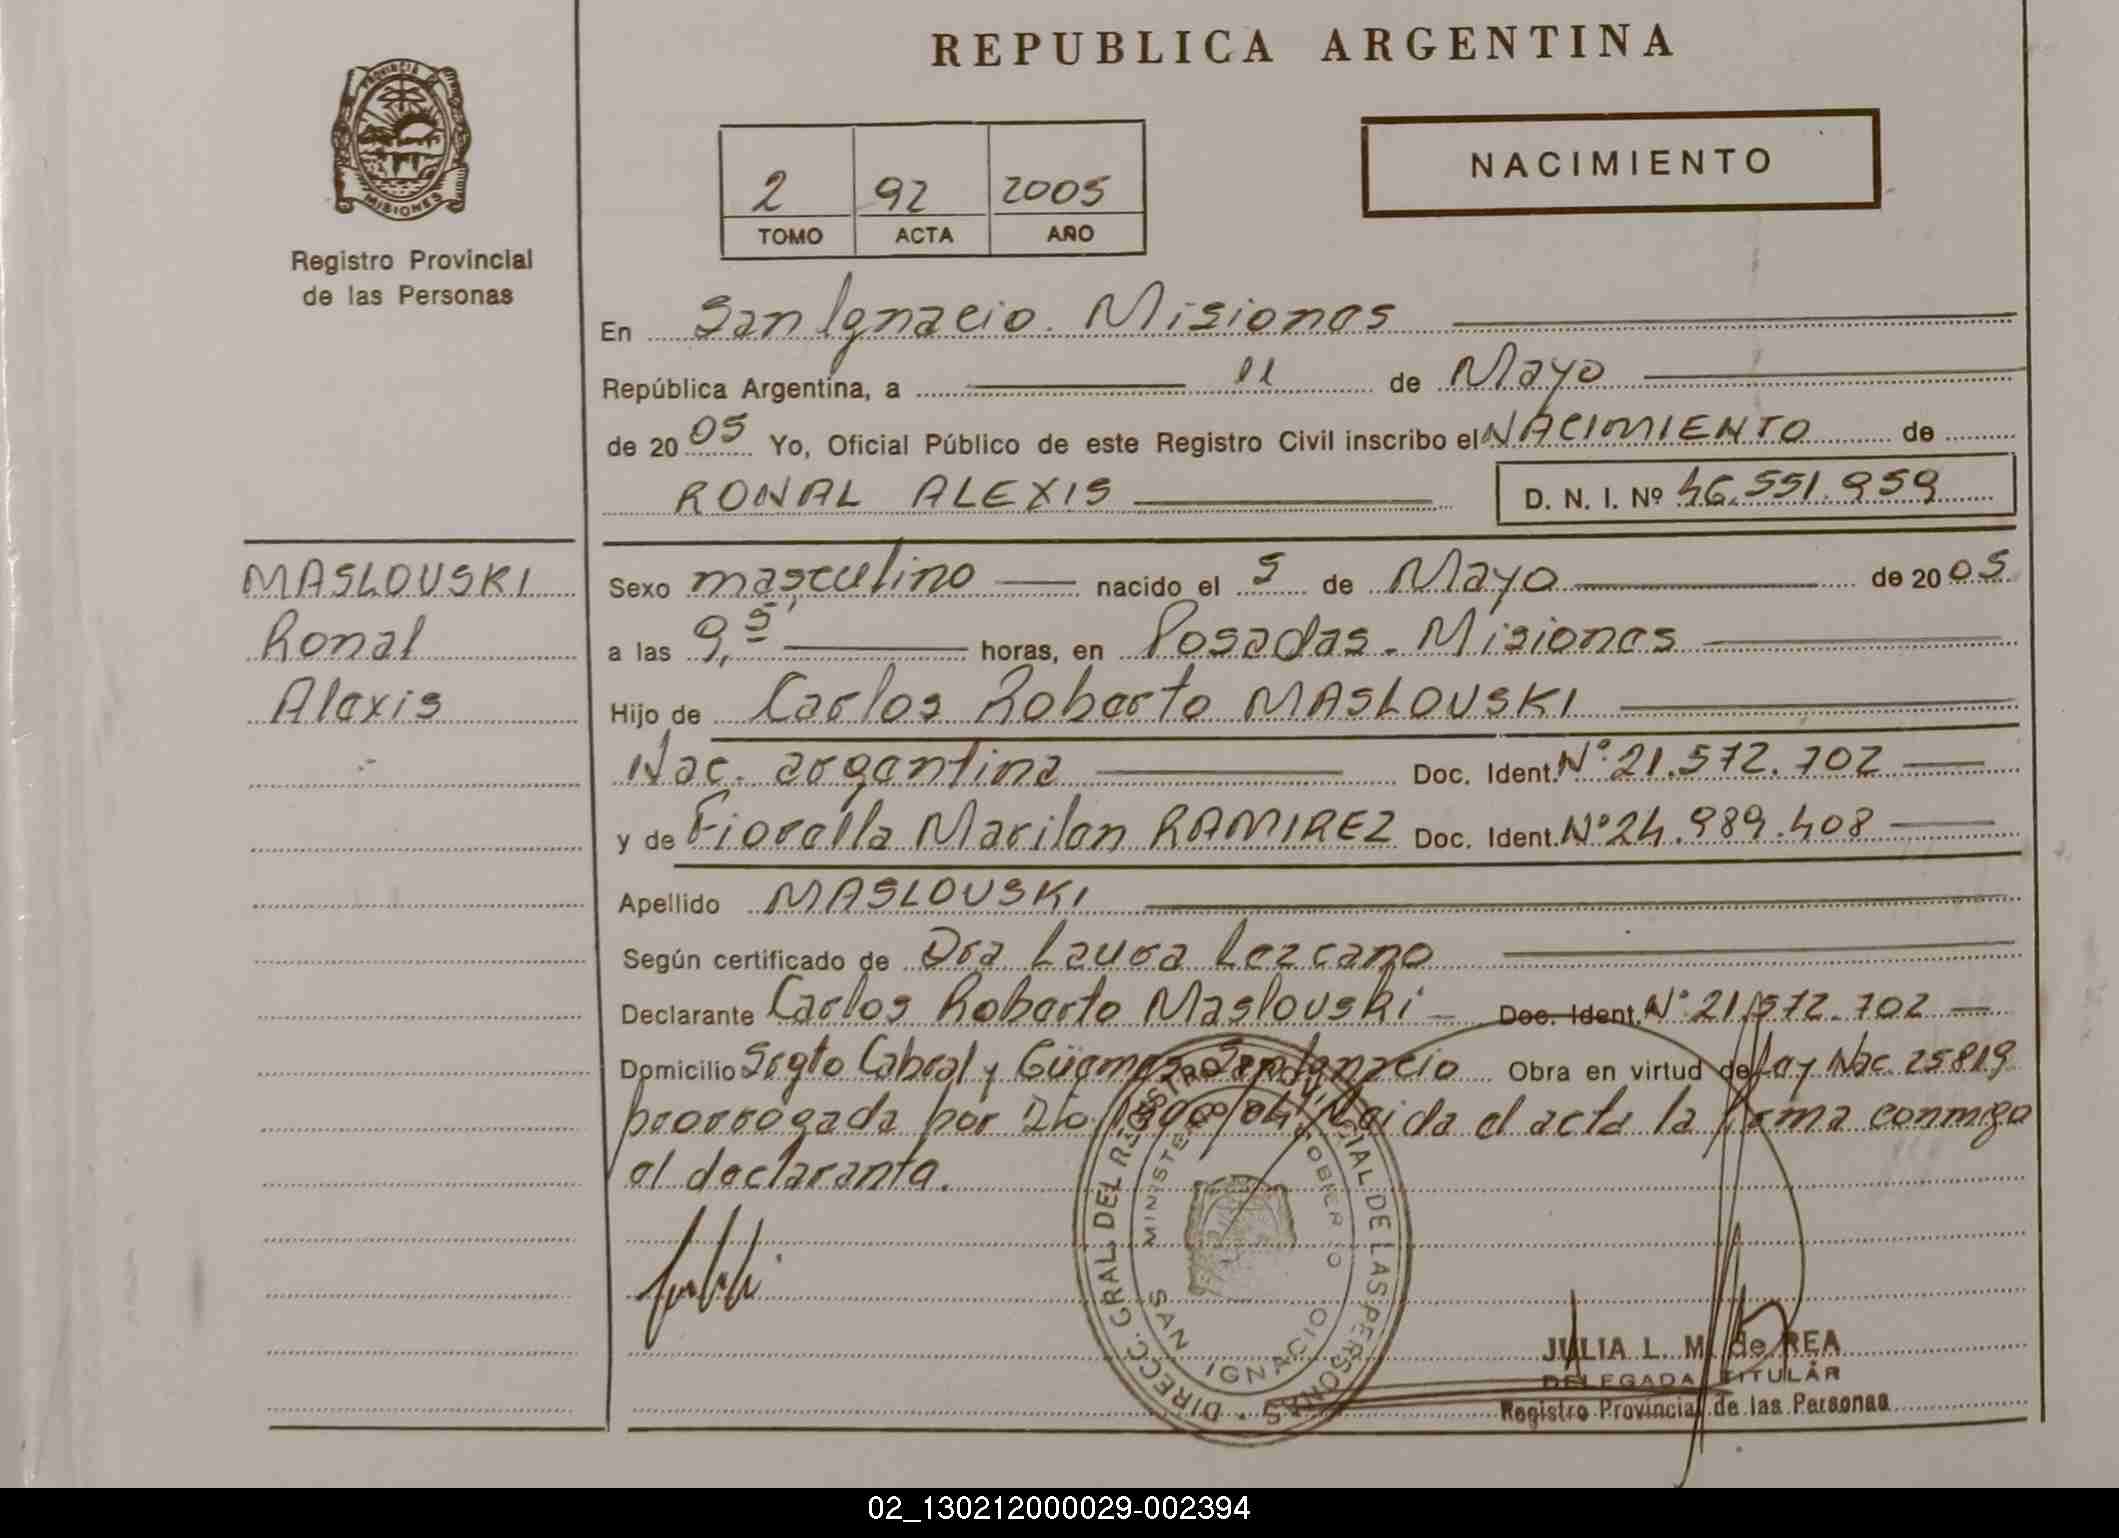 REPUBLICA ARGENTINA
PROVINCIA DE
MISIONES
Registro Provincial
de las Personas
2 92 2005
TOMO ACTA AÑO
NACIMIENTO
En San Ignacio. Misiones
República Argentina, a 11 de Mayo
de 2005 Yo, Oficial Público de este Registro Civil inscribo el NACIMIENTO de
RONAL ALEXIS D. N. I. Nº 46.551.959
MASLOUSKI
Ronal
Alexis
Sexo masculino nacido el 5 de Mayo de 2005
a las 9,5 horas, en Posadas - Misiones
Hijo de Carlos Roberto MASLOUSKI
Nac. argentina Doc. Ident. Nº 21.572.702
y de Fiorella Marilen RAMIREZ Doc. Ident. Nº 24.989.408
Apellido MASLOUSKI
Según certificado de Dra Laura Lezcano
Declarante Carlos Roberto Maslouski Doc. Ident. Nº 21.572.702
Domicilio Srgto Cabral y Güemes San Ignacio Obra en virtud de Ley Nac. 25819
prorrogada por Dto Leida el acta la firma conmigo
el declarante.
DIRECC. GRAL. DEL REGISTRO PROVINCIAL DE LAS PERSONAS
MINISTERIO GOBIERNO
SAN IGNACIO
JULIA L. M. de REA
DELEGADA TITULAR
Registro Provincial de las Personas
02_130212000029-002394